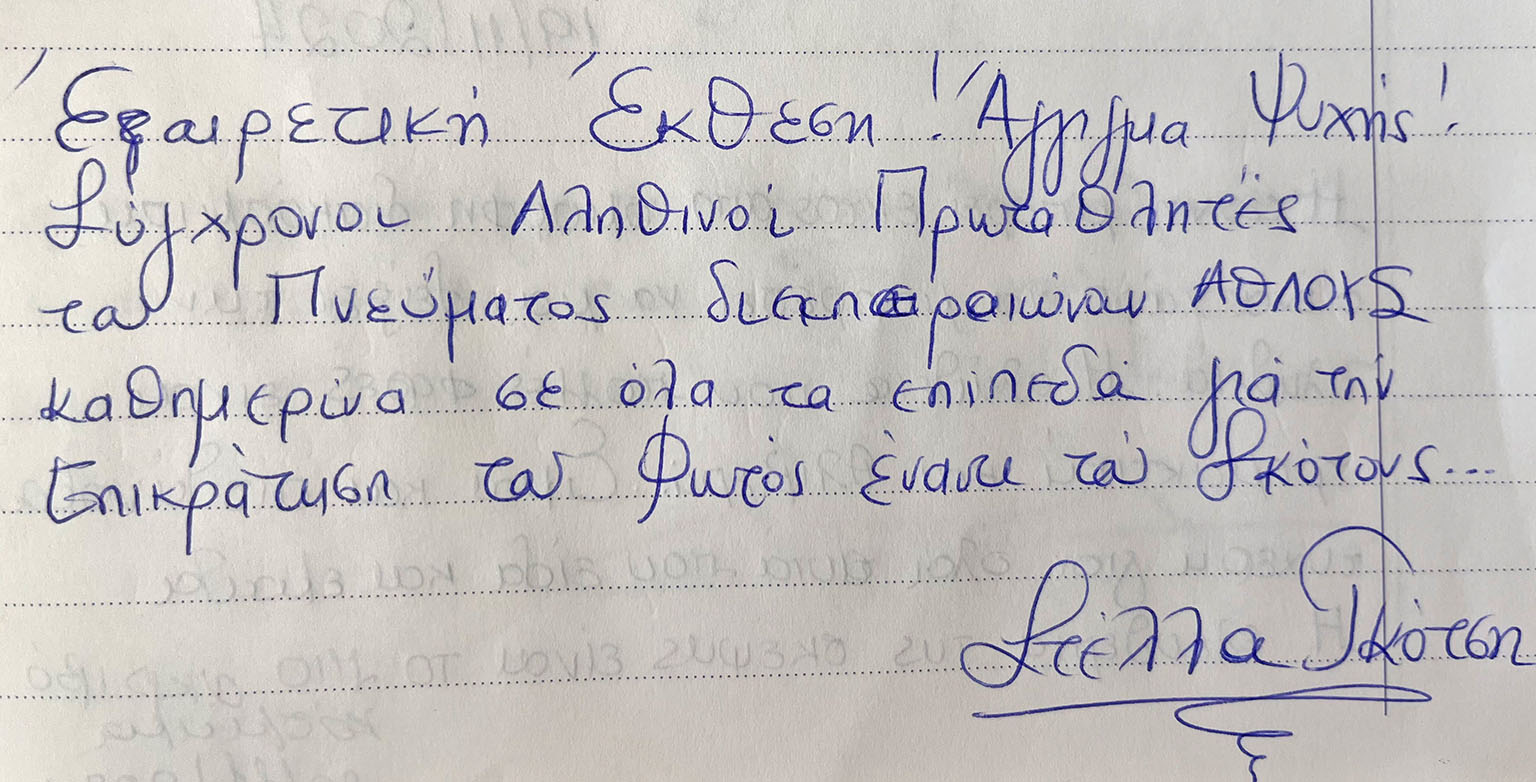 Εξαιρετική Έκθεση! Άγγιγμα Ψυχής!
Σύγχρονοι Αληθινοί Πρωταθλητές
του Πνεύματος ΑΘΛΟΥΣ
καθημερινά σε όλα τα επίπεδα για την
Επικράτηση του Φωτός έναντι του Σκότους...
Στέλλα Γκότση